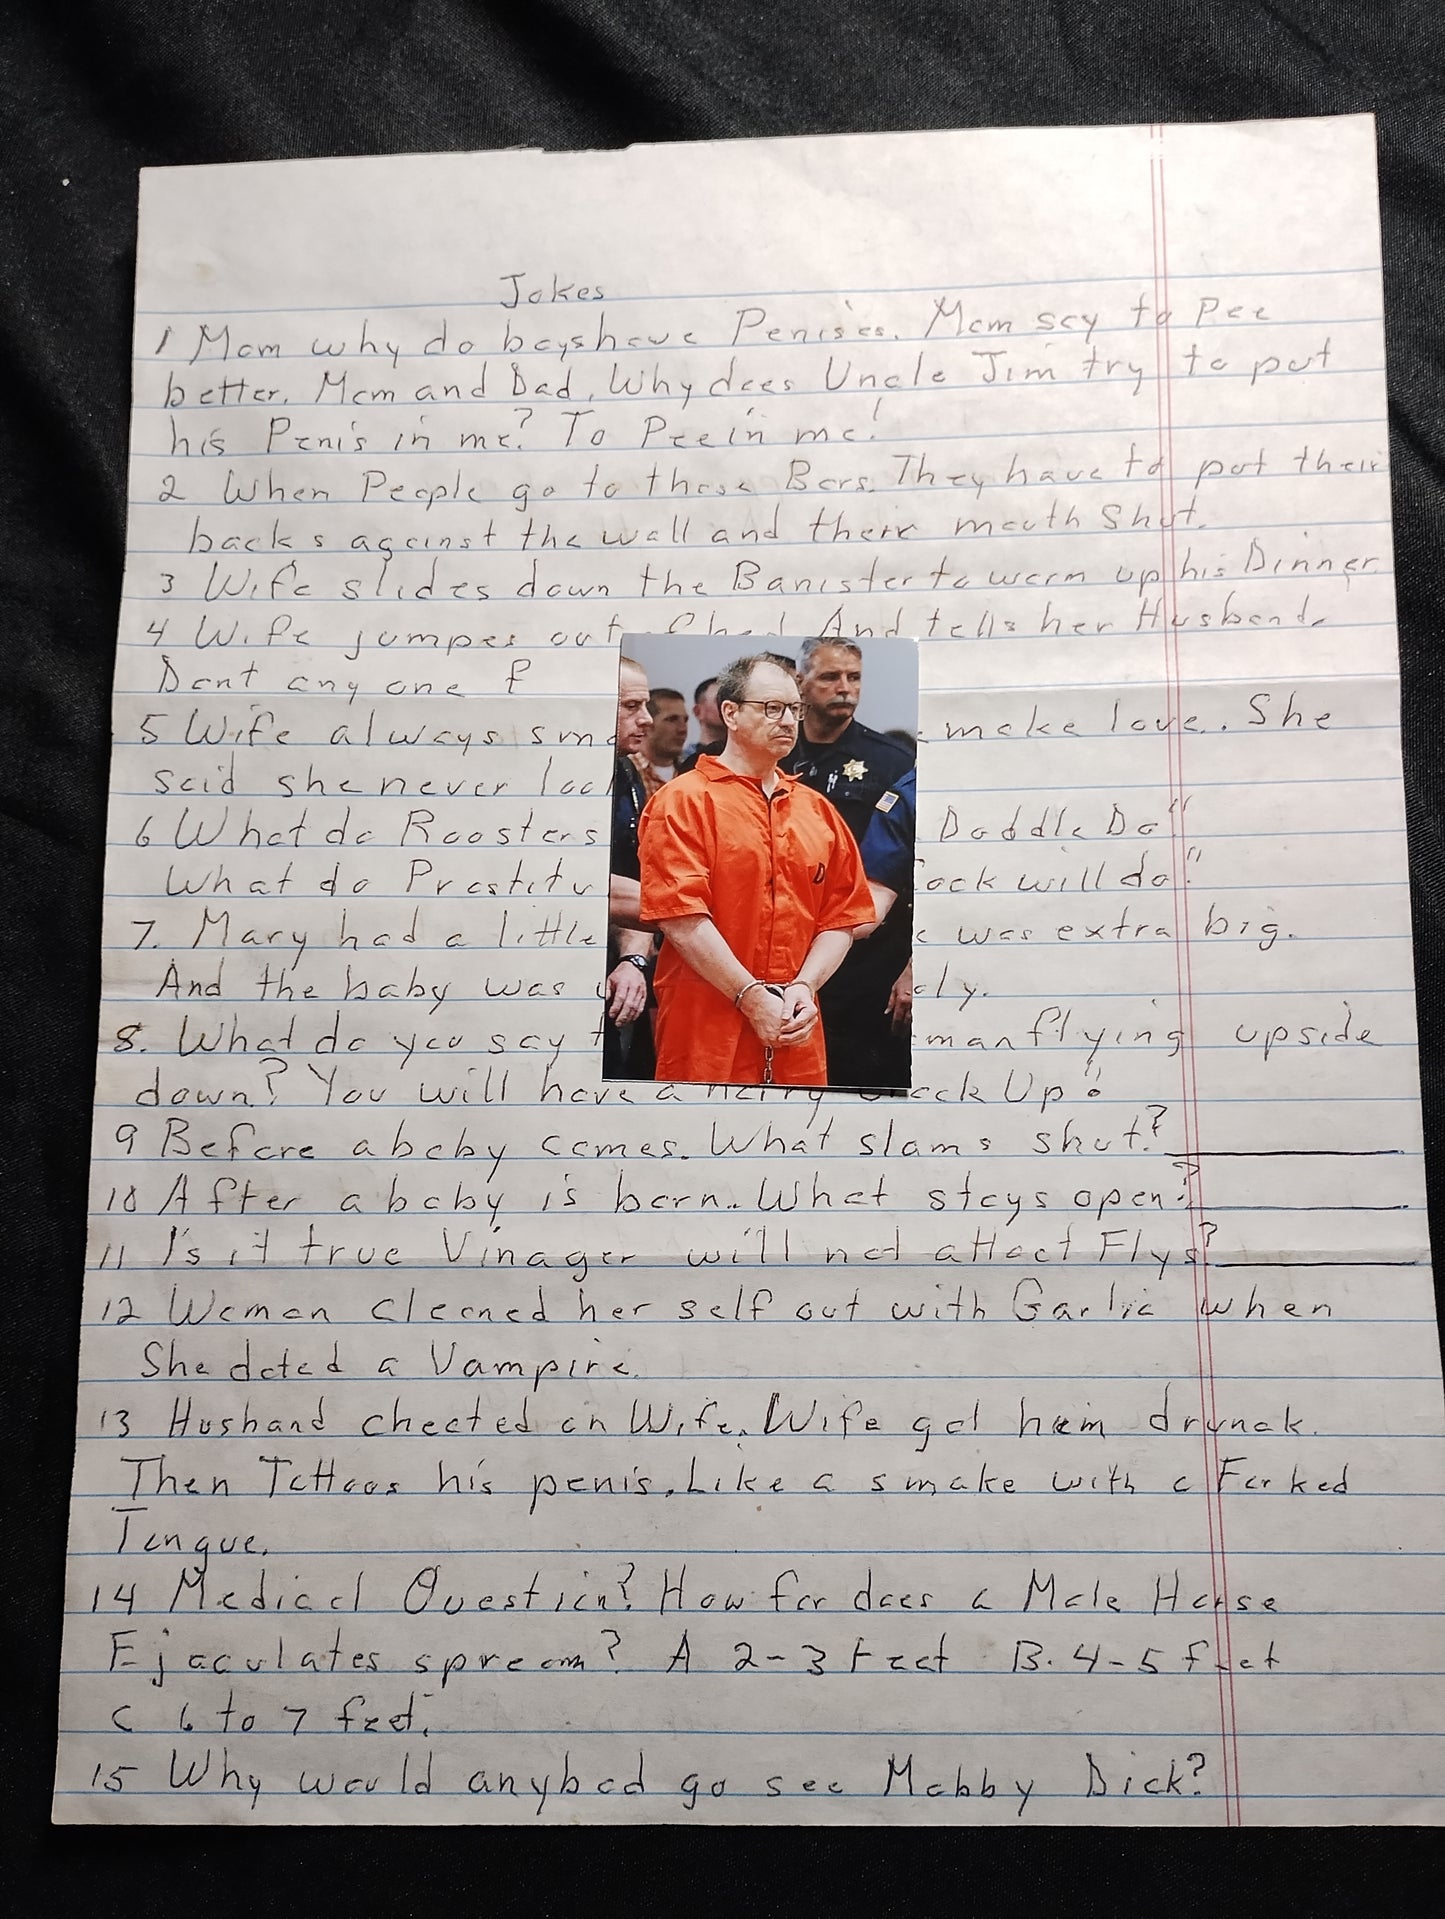 Jokes
1 Mom why do boys have Penises. Mom say to Pee
better. Mom and Dad, Why does Uncle Jim try to put
his Penis in me? To Pee in me!
2 When People go to those Bars. They have to put their
backs against the wall and there mouth Shut.
3 Wife slides down the Banister to warm up his Dinner.
4 Wife jumpes out of bed And tells her Husband.
Dont any one f
5 Wife always make love.. She
said she never
6 What do Roosters Doddle Do"
What do cock will do"
7. Mary had a little was extra big.
And the baby was
8. What do you say man flying upside
down? You will have a hairy Crack Up!
9 Before a baby comes. What slams shut?
10 After a baby is born.. What stays open?
11 Is it true Vinager will not attact Flys?
12 Woman cleaned her self out with Garlic when
She dated a Vampire.
13 Husband cheated on Wife. Wife got him drunak.
Then Tattoos his penis. Like a smake with a Forked
Tongue.
14 Medical Question? How far does a Male Horse
Ejaculates spream? A 2-3 Feet B. 4-5 feet
C 6 to 7 feet.
15 Why would anybod go see Mobby Dick?